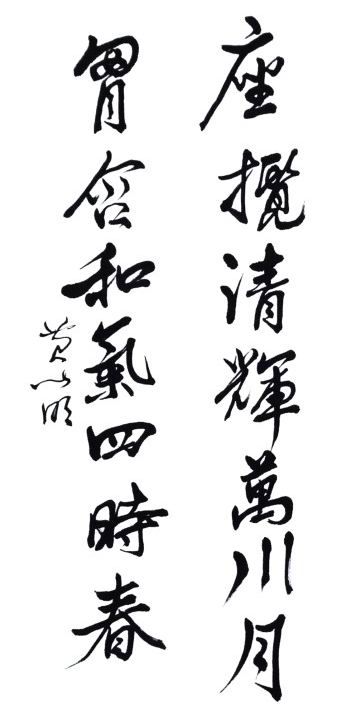 座攬清輝萬川月
胷含和氣四時春
黄以明